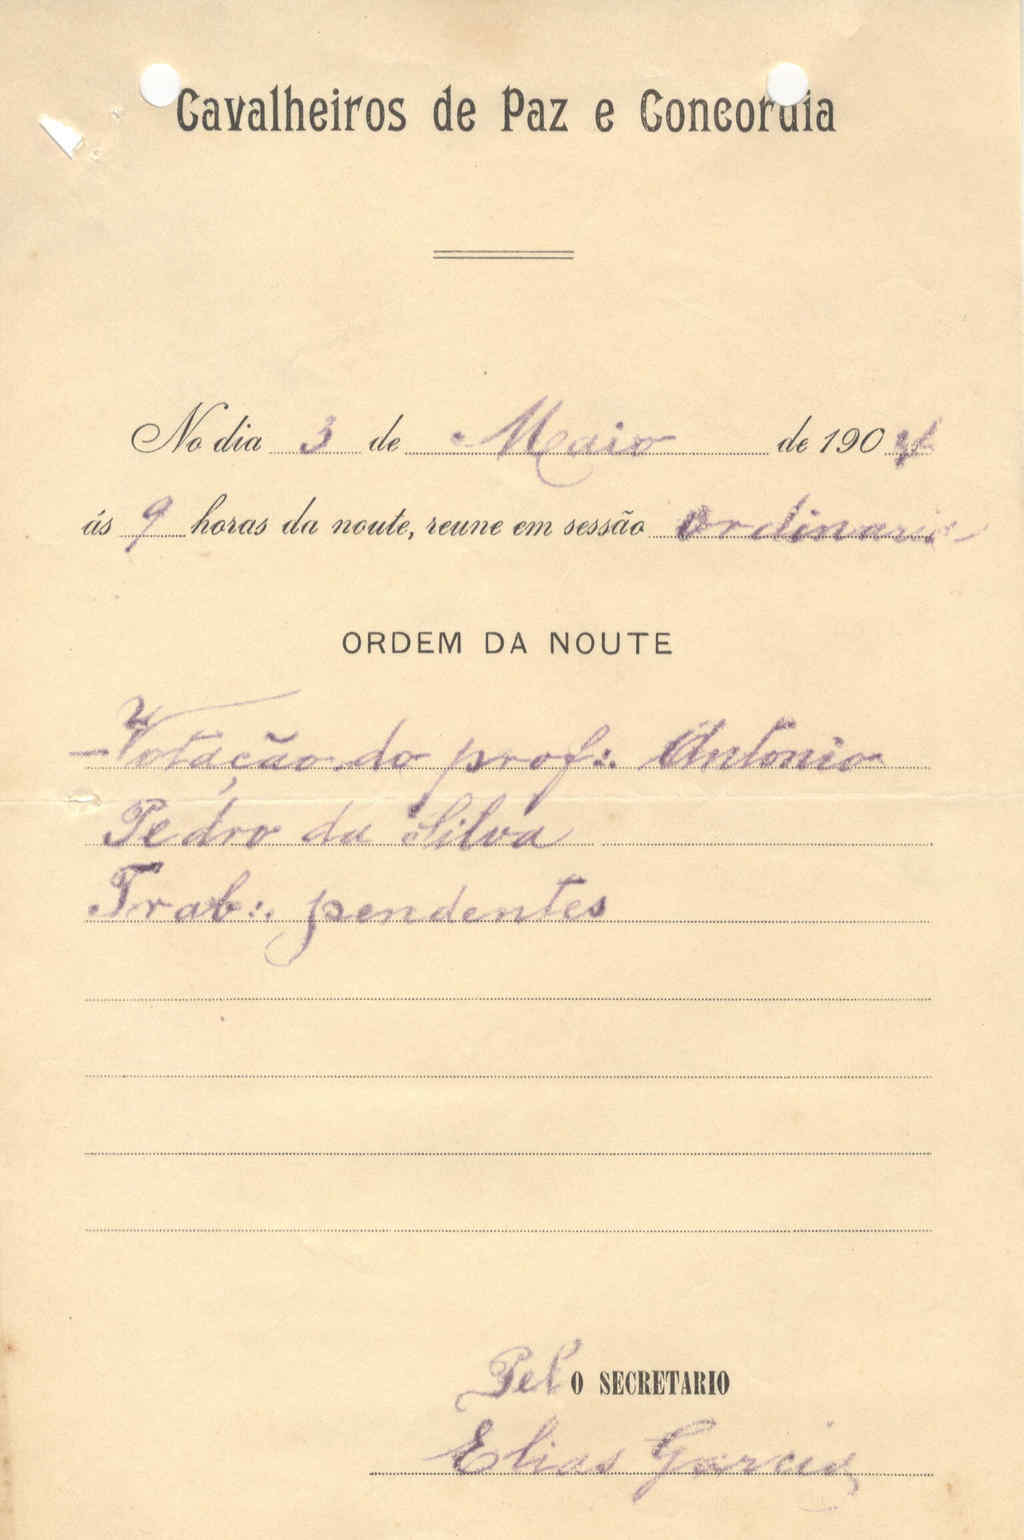 Cavalheiros de Paz e Concordia
No dia 3 de Maio de 1904
ás 9 horas da noute, reune em sessão Ordinaria
ORDEM DA NOUTE
- Votação do prof∴ Antonio
Pedro da Silva
Trab∴ pendentes
Pel O SECRETARIO
Elias Garcia